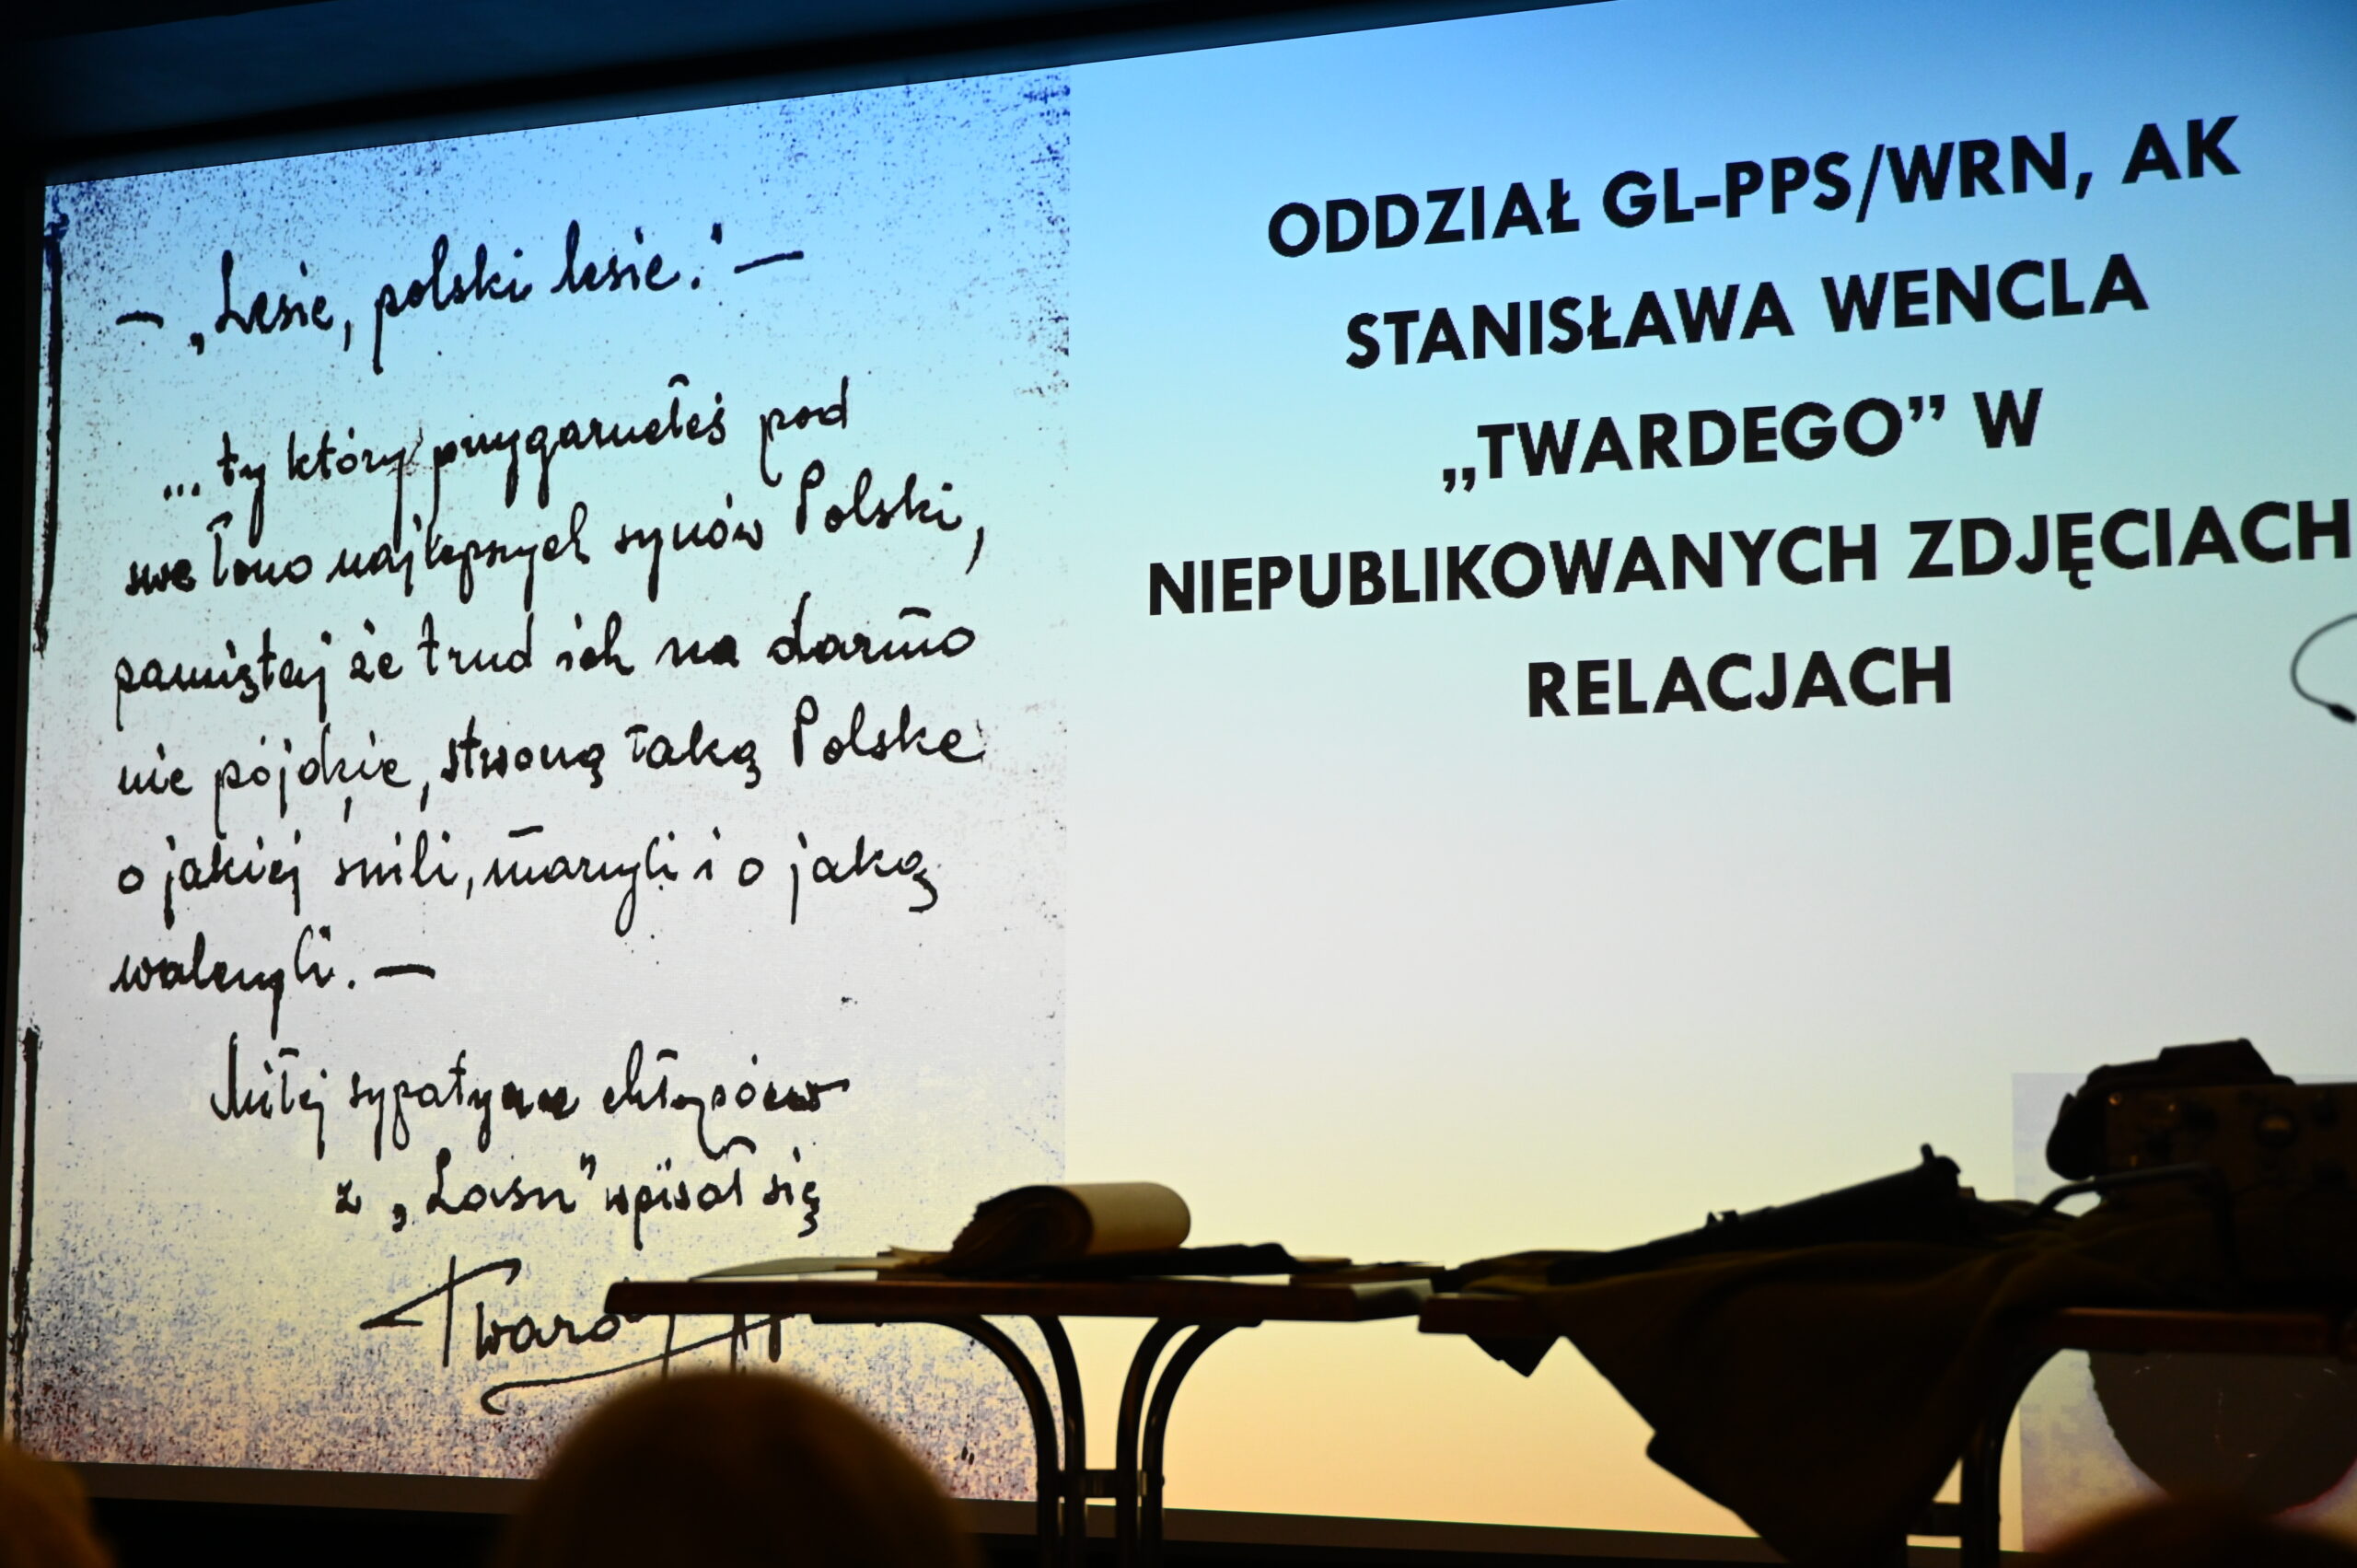 — „Lesie, polski lesie." —
... ty który przygarnełeś pod
swe łono najlepszych synów Polski,
pamiętaj że trud ich na darmo
nie pójdzie, stworzą taką Polskę
o jakiej śnili, marzyli i o jaką
walczyli. —
Miłej sypatyczce chłopców
z „Lasu" wpisał się
Twardy
ODDZIAŁ GL-PPS/WRN, AK
STANISŁAWA WENCLA
„TWARDEGO” W
NIEPUBLIKOWANYCH ZDJĘCIACH
RELACJACH